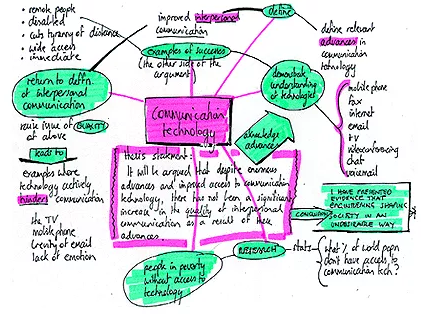 • remote people
• disabled
• cuts tyranny of distance
• wide access
• immediate
improved interpersonal
communication
define
define relevant
advances in
communication
technology
examples of success
(the other side of the
argument)
demonstrate
understanding
of technologies
mobile phone
fax
internet
email
TV
videoconferencing
chat
voicemail
return to defn.
of interpersonal
communication
raise issue of QUALITY
at above
communication
technology
acknowledge
advances
leads to
examples where
technology actively
hinders communication
the TV
mobile phone
brevity of email
lack of emotion
Thesis statement:
It will be argued that despite enormous
advances and improved access to communication
technology, there has not been a significant
increase in the quality of interpersonal
communication as a result of these
advances.
CONCLUSION
I HAVE PRESENTED
EVIDENCE THAT
ENGINEERING SHAPING
SOCIETY IN AN
UNDESIRABLE WAY
people in poverty
without access to
technology
RESEARCH
stats
what % of world popn
don't have access to
communication tech?